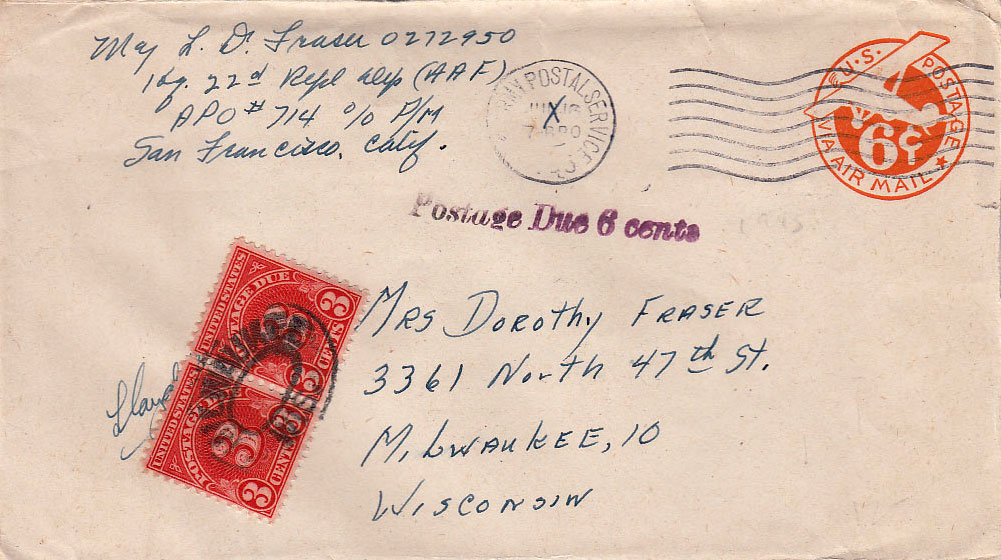 Maj L. D. Fraser 0272950
Hq. 22d Repl Dep (AAF)
APO # 714 c/o P/M
San Francisco, Calif.
POSTAL SERVICE
JUN 16
U.S. POSTAGE
6¢
VIA AIR MAIL
Postage Due 6 cents
1945
UNITED STATES
POSTAGE DUE
3
3 CENTS 3
UNITED STATES
POSTAGE DUE
3
3 CENTS 3
MRS DOROTHY FRASER
3361 NORTH 47th ST.
MILWAUKEE, 10
WISCONSIN